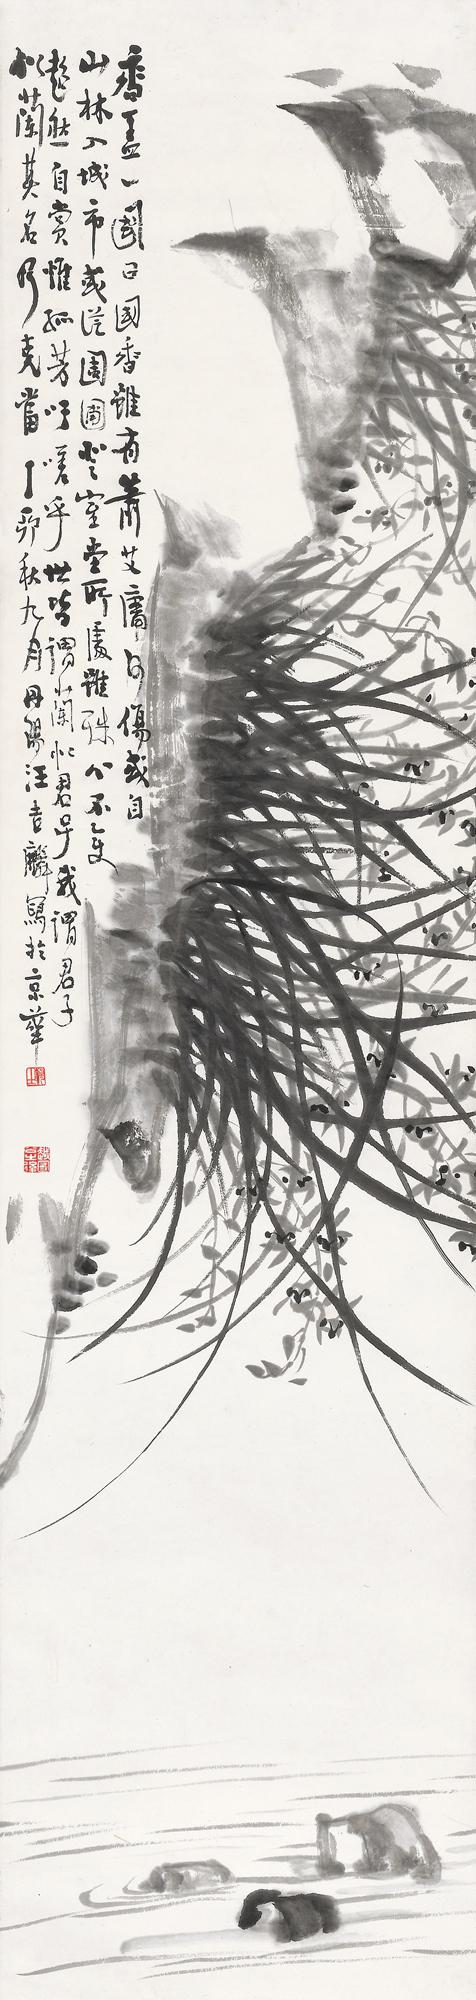 香盖一國曰國香雖有蕭艾庸何傷或自
山林入城市或從園圃登室堂所處雖殊心不變
超然自賞惟孤芳吁嗟乎世皆謂蘭似君子我謂君子
似蘭其名乃克當丁卯秋九月丹陽汪吉麟寫於京華